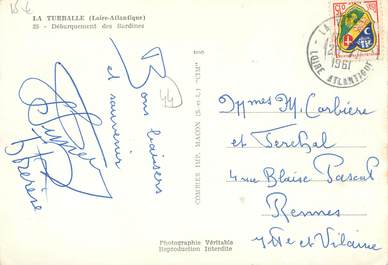 15 €
LA TURBALLE (Loire-Atlantique)
25 - Débarquement des Sardines
Bons baisers
et souvenir
Thérèse
44
COMBIER IMP. MACON (S.-et-L.) "CIM"
Photographie Véritable
Reproduction Interdite
LA
1961
LOIRE ATLANTIQUE
M. Corbière
et
4 rue Blaise Pascal
Rennes
Ille et Vilaine